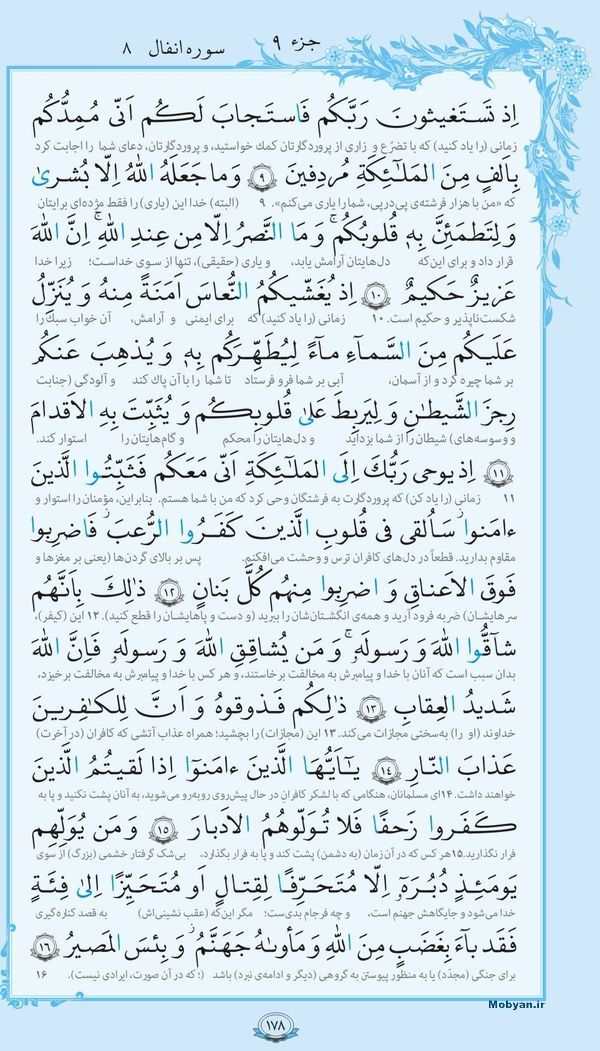 جزء ۹
سوره انفال ۸
اِذ تَستَغیثونَ رَبَّکُم فَاستَجابَ لَکُم اَنّی مُمِدُّکُم
زمانی (را یاد کنید) که با تضرّع و زاری از پروردگارتان کمک خواستید، و پروردگارتان، دعای شما را اجابت کرد
بِاَلفٍ مِنَ المَلٰـئِکَةِ مُردِفینَ ۹ وَ ما جَعَلَهُ اللهُ اِلّا بُشریٰ
که «من با هزار فرشته‌ی پی‌درپی، شما را یاری می‌کنم». ۹ (البته) خدا این (یاری) را فقط مژده‌ای برایتان
وَ لِتَطمَئِنَّ بِهٖ قُلوبُکُم ۚ وَ مَا النَّصرُ اِلّا مِن عِندِ اللهِ ۚ اِنَّ اللهَ
قرار داد و برای این‌که دل‌هایتان آرامش یابد، و یاری (حقیقی)، تنها از سوی خداست؛ زیرا خدا
عَزیزٌ حَکیمٌ ۱۰ اِذ یُغَشّیکُمُ النُّعاسَ اَمَنَةً مِنهُ وَ یُنَزِّلُ
شکست‌ناپذیر و حکیم است. ۱۰ زمانی (را یاد کنید) که برای ایمنی و آرامش، آن خواب سبک را
عَلَیکُم مِنَ السَّماءِ ماءً لِیُطَهِّرَکُم بِهٖ وَ یُذهِبَ عَنکُم
بر شما چیره کرد و از آسمان، آبی بر شما فرو فرستاد تا شما را با آن پاک کند و آلودگی (جنابت
رِجزَ الشَّیطٰنِ وَ لِیَربِطَ عَلیٰ قُلوبِکُم وَ یُثَبِّتَ بِهِ الاَقدامَ
و وسوسه‌های) شیطان را از شما بزداید و دل‌هایتان را محکم و گام‌هایتان را استوار کند.
۱۱ اِذ یوحی رَبُّکَ اِلَی المَلٰـئِکَةِ اَنّی مَعَکُم فَثَبِّتُوا الَّذینَ
۱۱ زمانی (را یاد کن) که پروردگارت به فرشتگان وحی کرد که من با شما هستم. بنابراین، مؤمنان را استوار و
ءامَنوا ۚ سَاُلقی فی قُلوبِ الَّذینَ کَفَرُوا الرُّعبَ فَاضرِبوا
مقاوم بدارید. قطعاً در دل‌های کافران ترس و وحشت می‌افکنم. پس بر بالای گردن‌ها (یعنی بر مغزها و
فَوقَ الاَعناقِ وَ اضرِبوا مِنهُم کُلَّ بَنانٍ ۱۲ ذٰلِکَ بِاَنَّهُم
سرهایشان) ضربه فرود آرید و همه‌ی انگشت‌شان را ببرید (و دست و پاهایشان را قطع کنید). ۱۲ این (کیفر)،
شاقُّوا اللهَ وَ رَسولَهٗ ۚ وَ مَن یُشاقِقِ اللهَ وَ رَسولَهٗ فَاِنَّ اللهَ
بدان سبب است که آنان با خدا و پیامبرش به مخالفت برخاستند، و هر کس با خدا و پیامبرش به مخالفت برخیزد،
شَدیدُ العِقابِ ۱۳ ذٰلِکُم فَذوقوهُ وَ اَنَّ لِلکٰفِرینَ
خداوند (او را) به‌سختی مجازات می‌کند. ۱۳ این (مجازات) را بچشید؛ همراه عذاب آتشی که کافران (در آخرت)
عَذابَ النّارِ ۱۴ یٰـاَیُّهَا الَّذینَ ءامَنوا اِذا لَقیتُمُ الَّذینَ
خواهند داشت. ۱۴ ای مسلمانان، هنگامی که با لشکر کافران در حال پیش‌روی روبه‌رو می‌شوید، به آنان پشت نکنید و پا به
کَفَروا زَحفًا فَلا تُوَلّوهُمُ الاَدبارَ ۱۵ وَ مَن یُوَلِّهِم
فرار نگذارید. ۱۵ هر کس که در آن زمان (به دشمن) پشت کند و پا به فرار بگذارد، بی‌شک گرفتار خشمی (بزرگ) از سوی
یَومَئِذٍ دُبُرَهٗ اِلّا مُتَحَرِّفًا لِقِتالٍ اَو مُتَحَیِّزًا اِلیٰ فِئَةٍ
خدا می‌شود و جایگاهش جهنم است، و چه فرجام بدی‌ست؛ مگر این‌که (عقب نشینی‌اش) به قصد کناره‌گیری
فَقَد باءَ بِغَضَبٍ مِنَ اللهِ وَ مَأوىٰهُ جَهَنَّمُ ۖ وَ بِئسَ المَصیرُ ۱۶
برای جنگی (مجدّد) یا به منظور پیوستن به گروهی (دیگر و ادامه‌ی نبرد) باشد (؛ که در آن صورت، ایرادی نیست). ۱۶
Mobyan.ir
۱۷۸